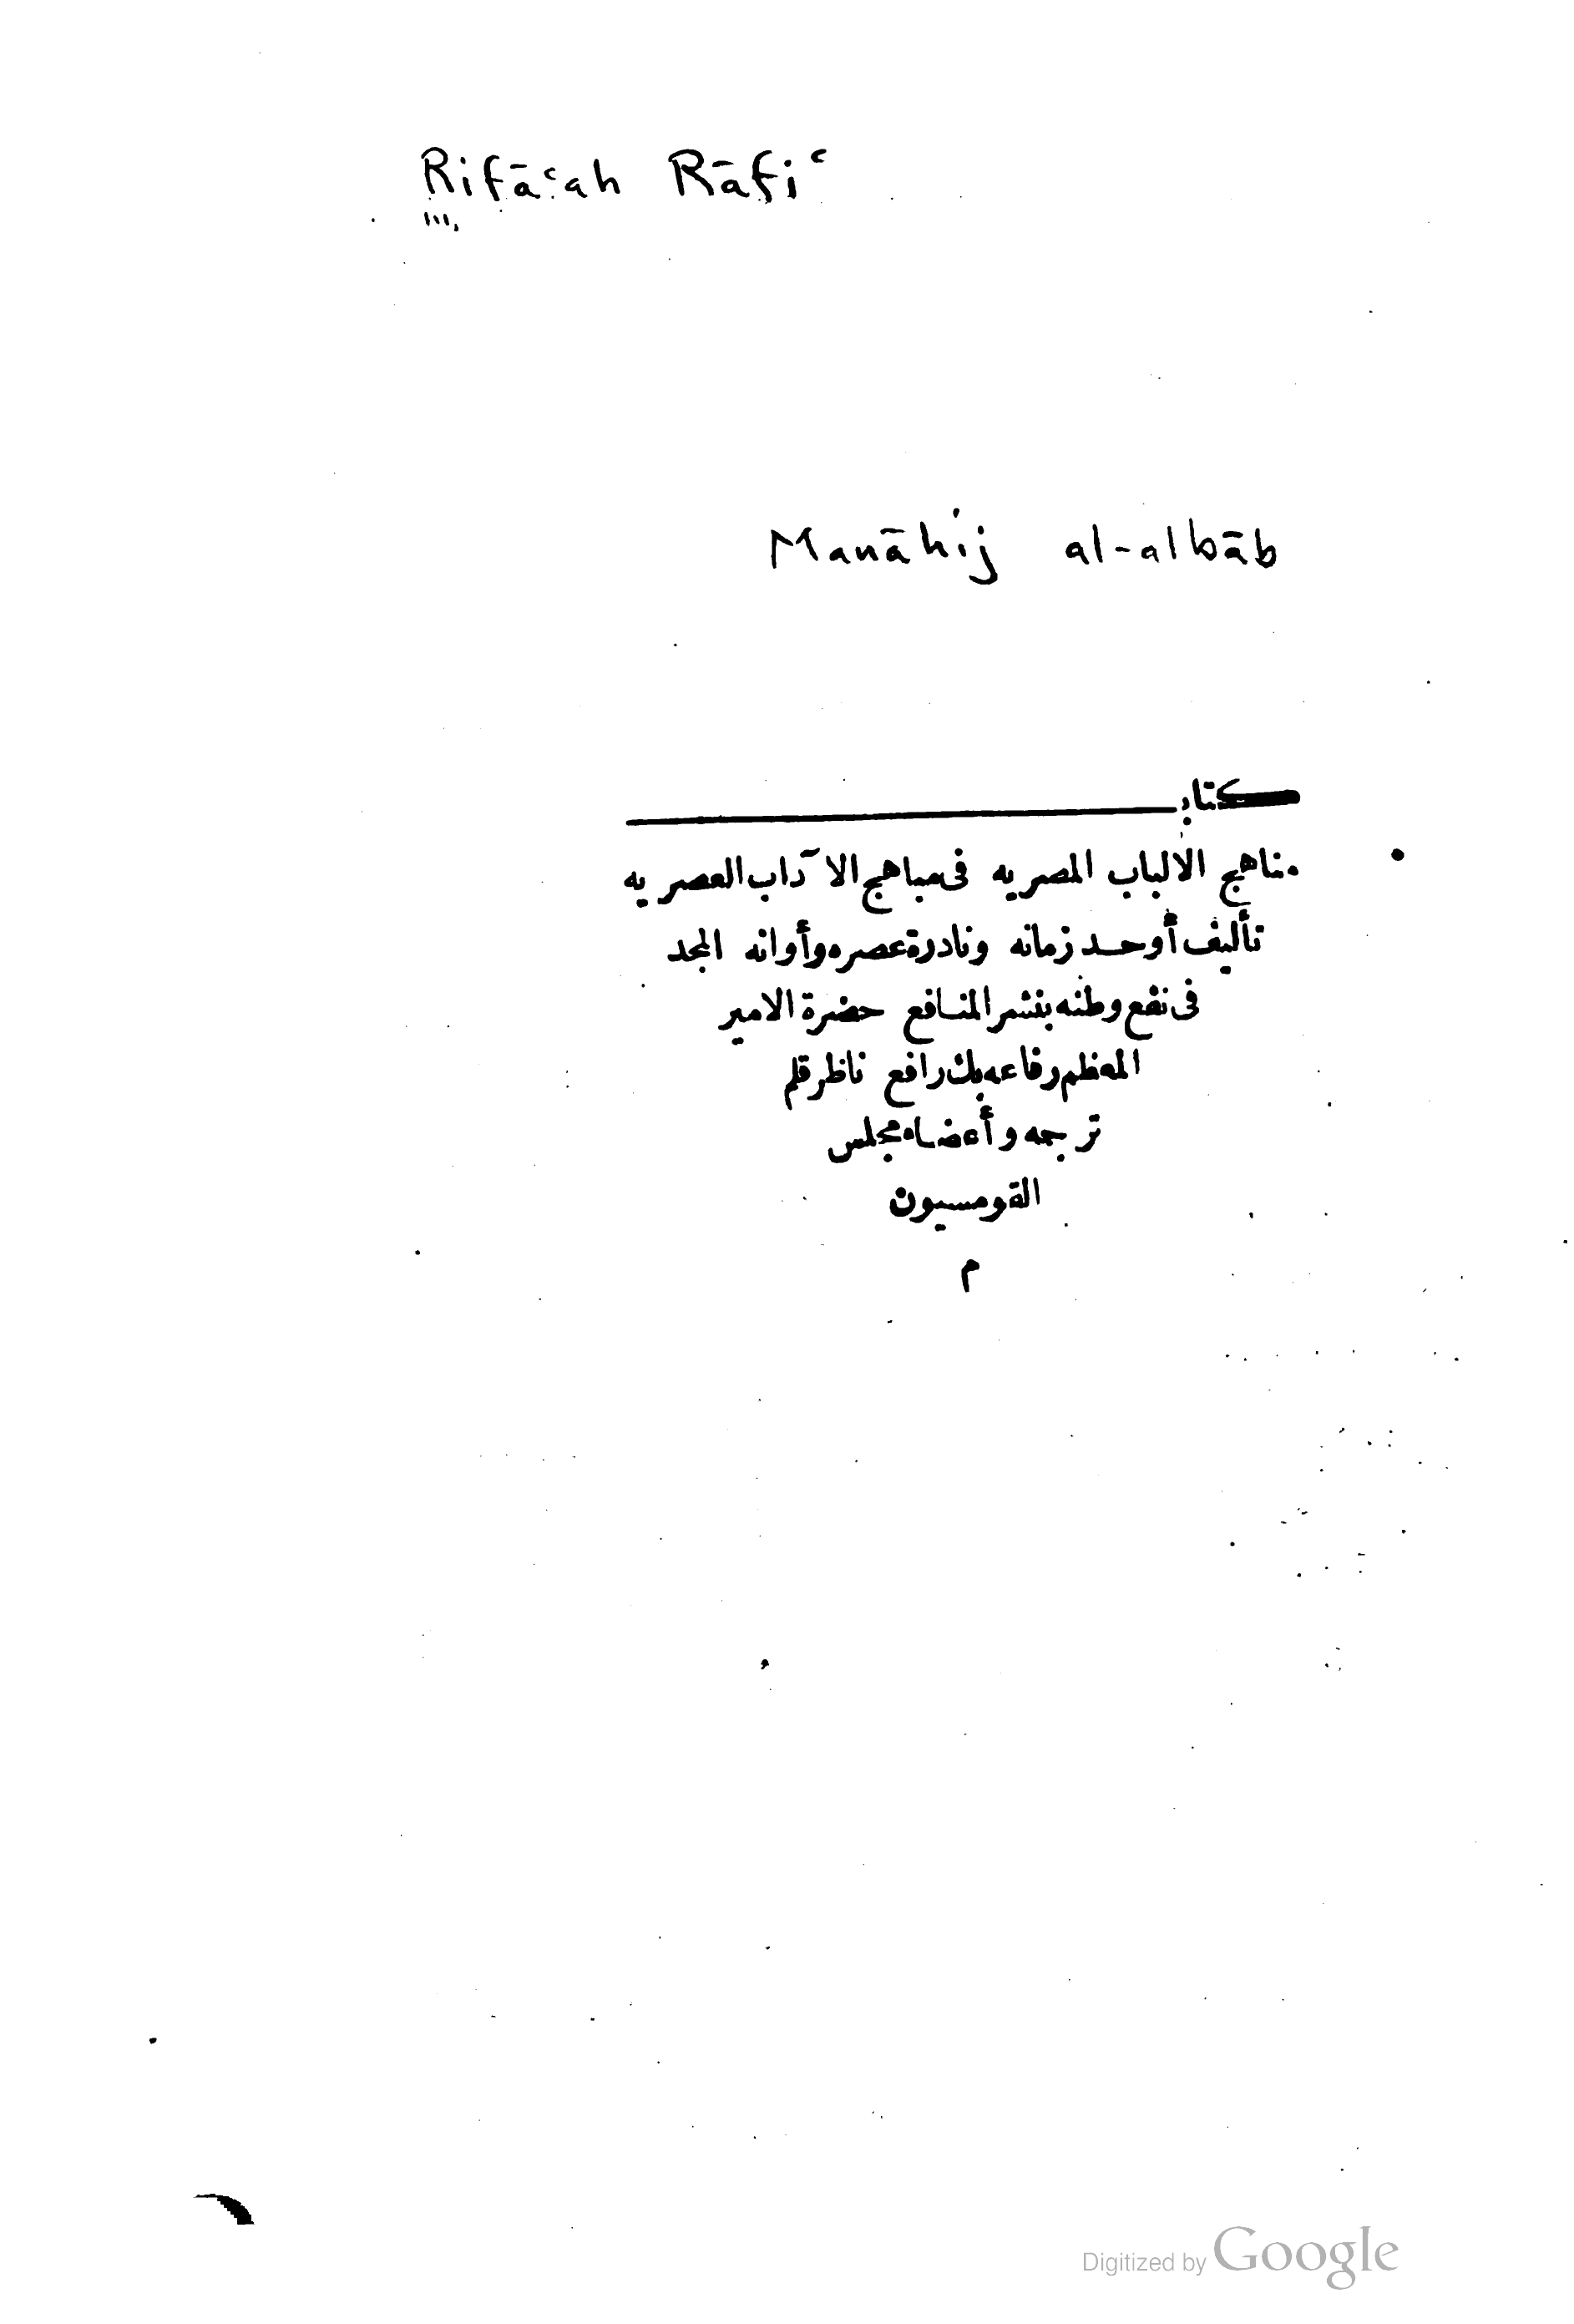 Rifāʿah Rāfiʿ
Manāhij al-albāb
كتاب
مناهج الالباب المصريه فى مباهج الآداب العصريه
تأليف أوحد زمانه ونادرة عصره وأوانه المجد
فى نفع وطنه بنشر المنافع حضرة الامير
المعظم رفاعه بك رافع ناظر قلم
ترجمه وأعضاء مجلس
القومسيون
م
Digitized by Google